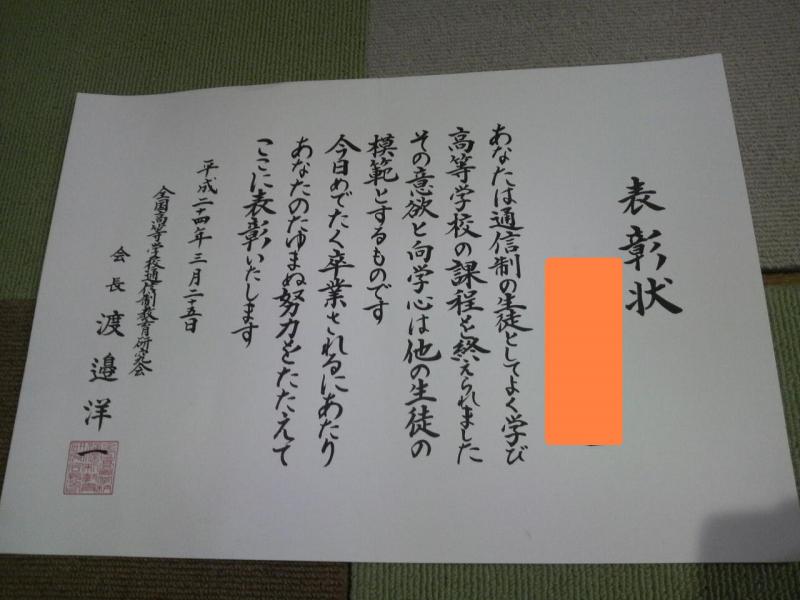 表彰状
あなたは通信制の生徒としてよく学び
高等学校の課程を終えられました
その意欲と向学心は他の生徒の
模範とするものです
今日めでたく卒業されるにあたり
あなたのたゆまぬ努力をたたえて
ここに表彰いたします
平成二十四年三月二十五日
全国高等学校通信制教育研究会
会長 渡邉洋一